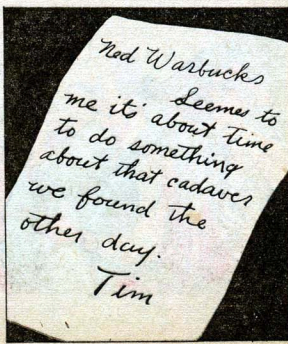 Ned Warbucks
Seemes to
me it's about time
to do something
about that cadaver
we found the
other day.
Tim